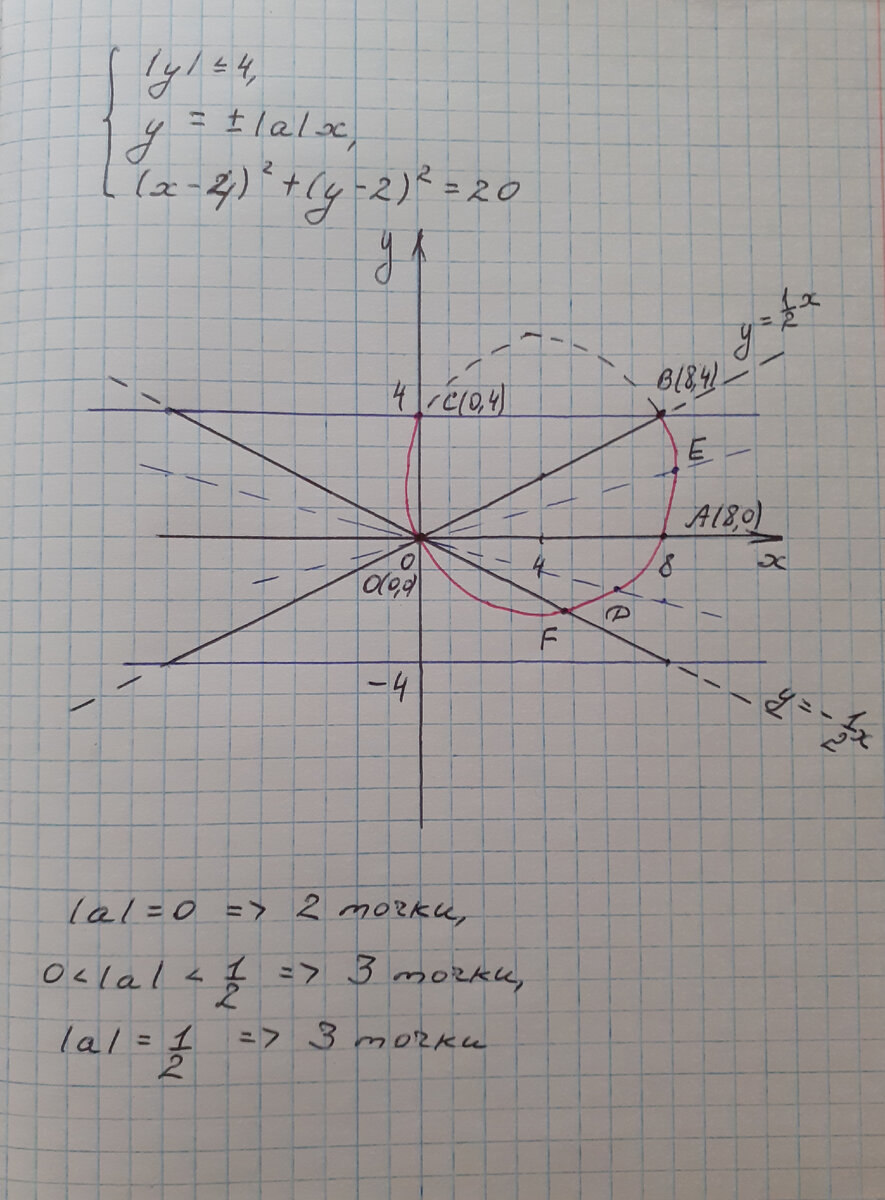 |y| ≤ 4,
y = ±|a|x,
(x-4)² + (y-2)² = 20
y
y = 1/2 x
4
C(0,4)
B(8,4)
E
A(8,0)
0
4
8
x
O(0,0)
F
D
-4
y = -1/2 x
|a| = 0 => 2 точки,
0 < |a| < 1/2 => 3 точки,
|a| = 1/2 => 3 точки